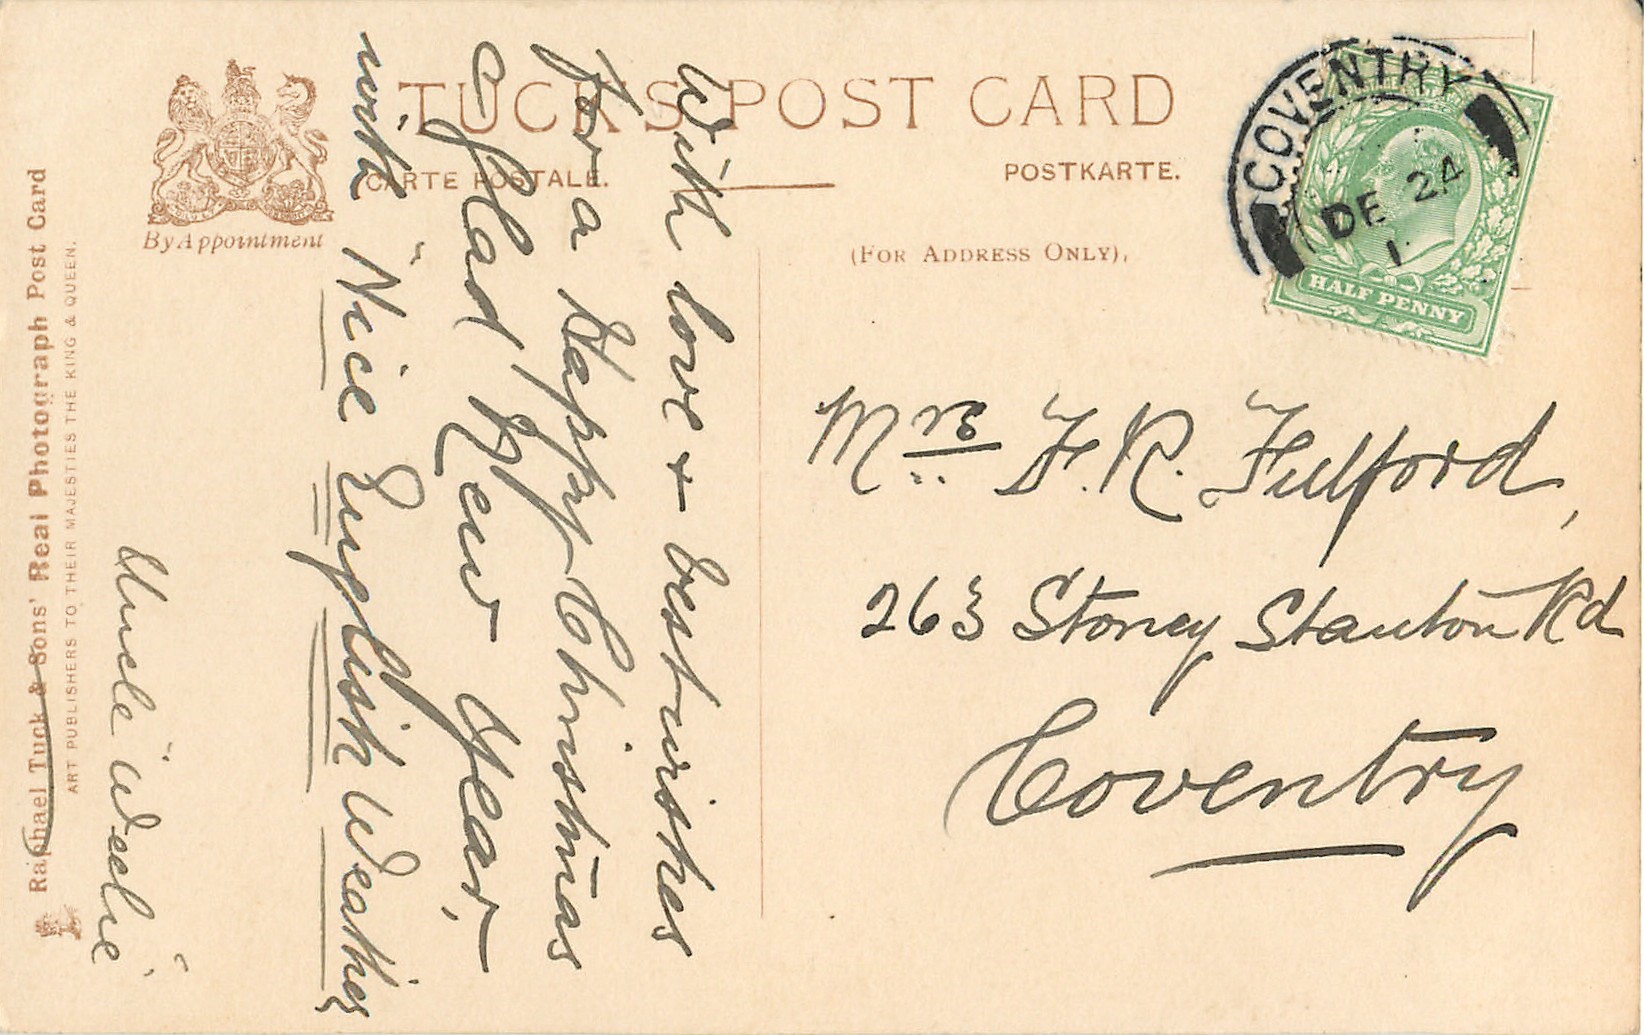 TUCK'S POST CARD
CARTE POSTALE.
POSTKARTE.
(FOR ADDRESS ONLY).
By Appointment
Raphael Tuck & Sons' Real Photograph Post Card
ART PUBLISHERS TO THEIR MAJESTIES THE KING & QUEEN.
COVENTRY
DE 24
1
HALF PENNY
With love + best wishes
for a Happy Christmas
& Glad New Year,
with "Nice English Weather
Uncle
Mrs F. R. Fulford,
263 Stoney Stanton Rd
Coventry